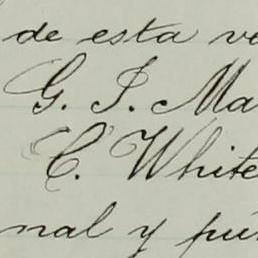 de esta ve
G. I. Ma
C. White
nal y pú